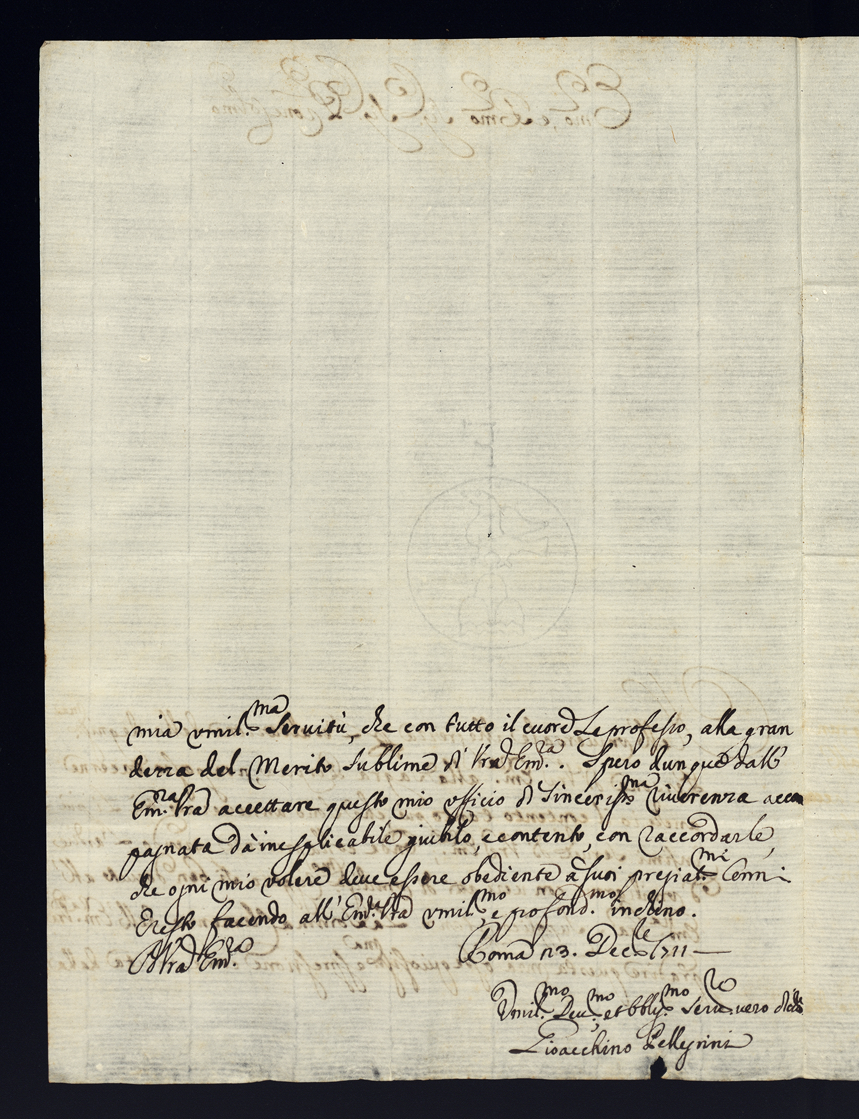 mia vmil.ma Seruitù, che con tutto il cuore Le professo, alla gran
dezza del Merito Sublime di Vra Em.za. Spero dunque dall'
Em.za Vra accettare questo mio vfficio di Sinceriss.ma riuerenza accom
pagnata dà inesplicabile giubilo, e contento, con raccordarle,
che ogni mio volere deue essere obediente à suoi pregiat.mi Cenni
E resto facendo all' Em.za Vra vmil.mo e profond.mo inchino.
Di Vra Em.za Roma 3. Dec.re 1711
Vmil.mo Deu.mo et Obblig.mo Seru.re vero
Gioacchino Pellegrini